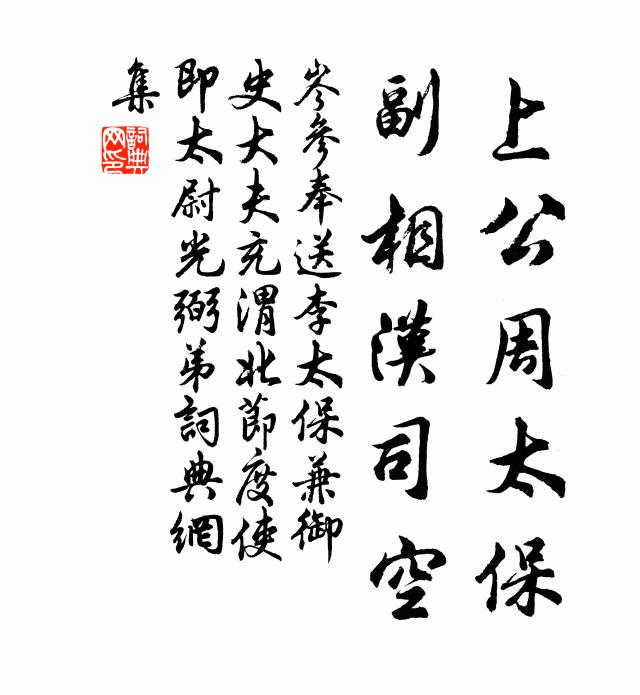 上公周太保
副相漢司空
岑參奉送李太保兼御
史大夫充渭北節度使
即太尉光弼弟詞典網
集
詞典
网印